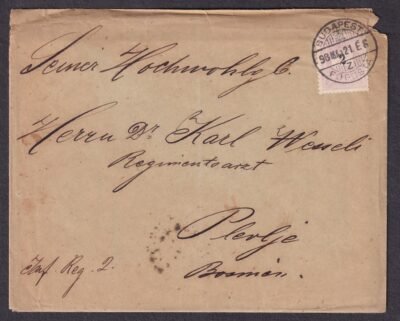 BUDAPEST
98 21 E 6
Seiner Hochwohlg
Herrn Dr Karl Wessely
Regimentsarzt
Plevlje
Inf Reg. 2. Bosnien.